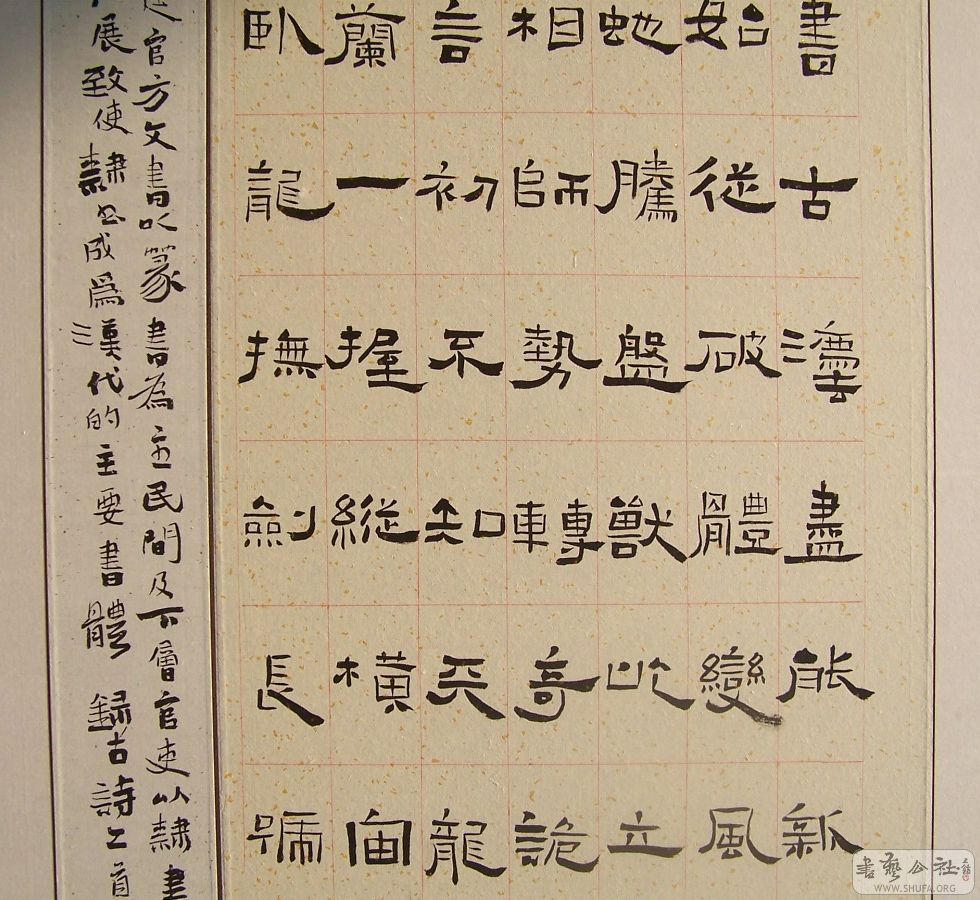 書古灋盡能新
始從破體變風
虵騰盤獸屹立
相師勢轉奇詭
言初不知天龍
蘭一握縱橫
臥龍撫劍長號
官方文書以篆書為主民間及下層官吏以隸書
展致使隸書成爲漢代的主要書體 録古詩二首
書藝公社
WWW.SHUFA.ORG